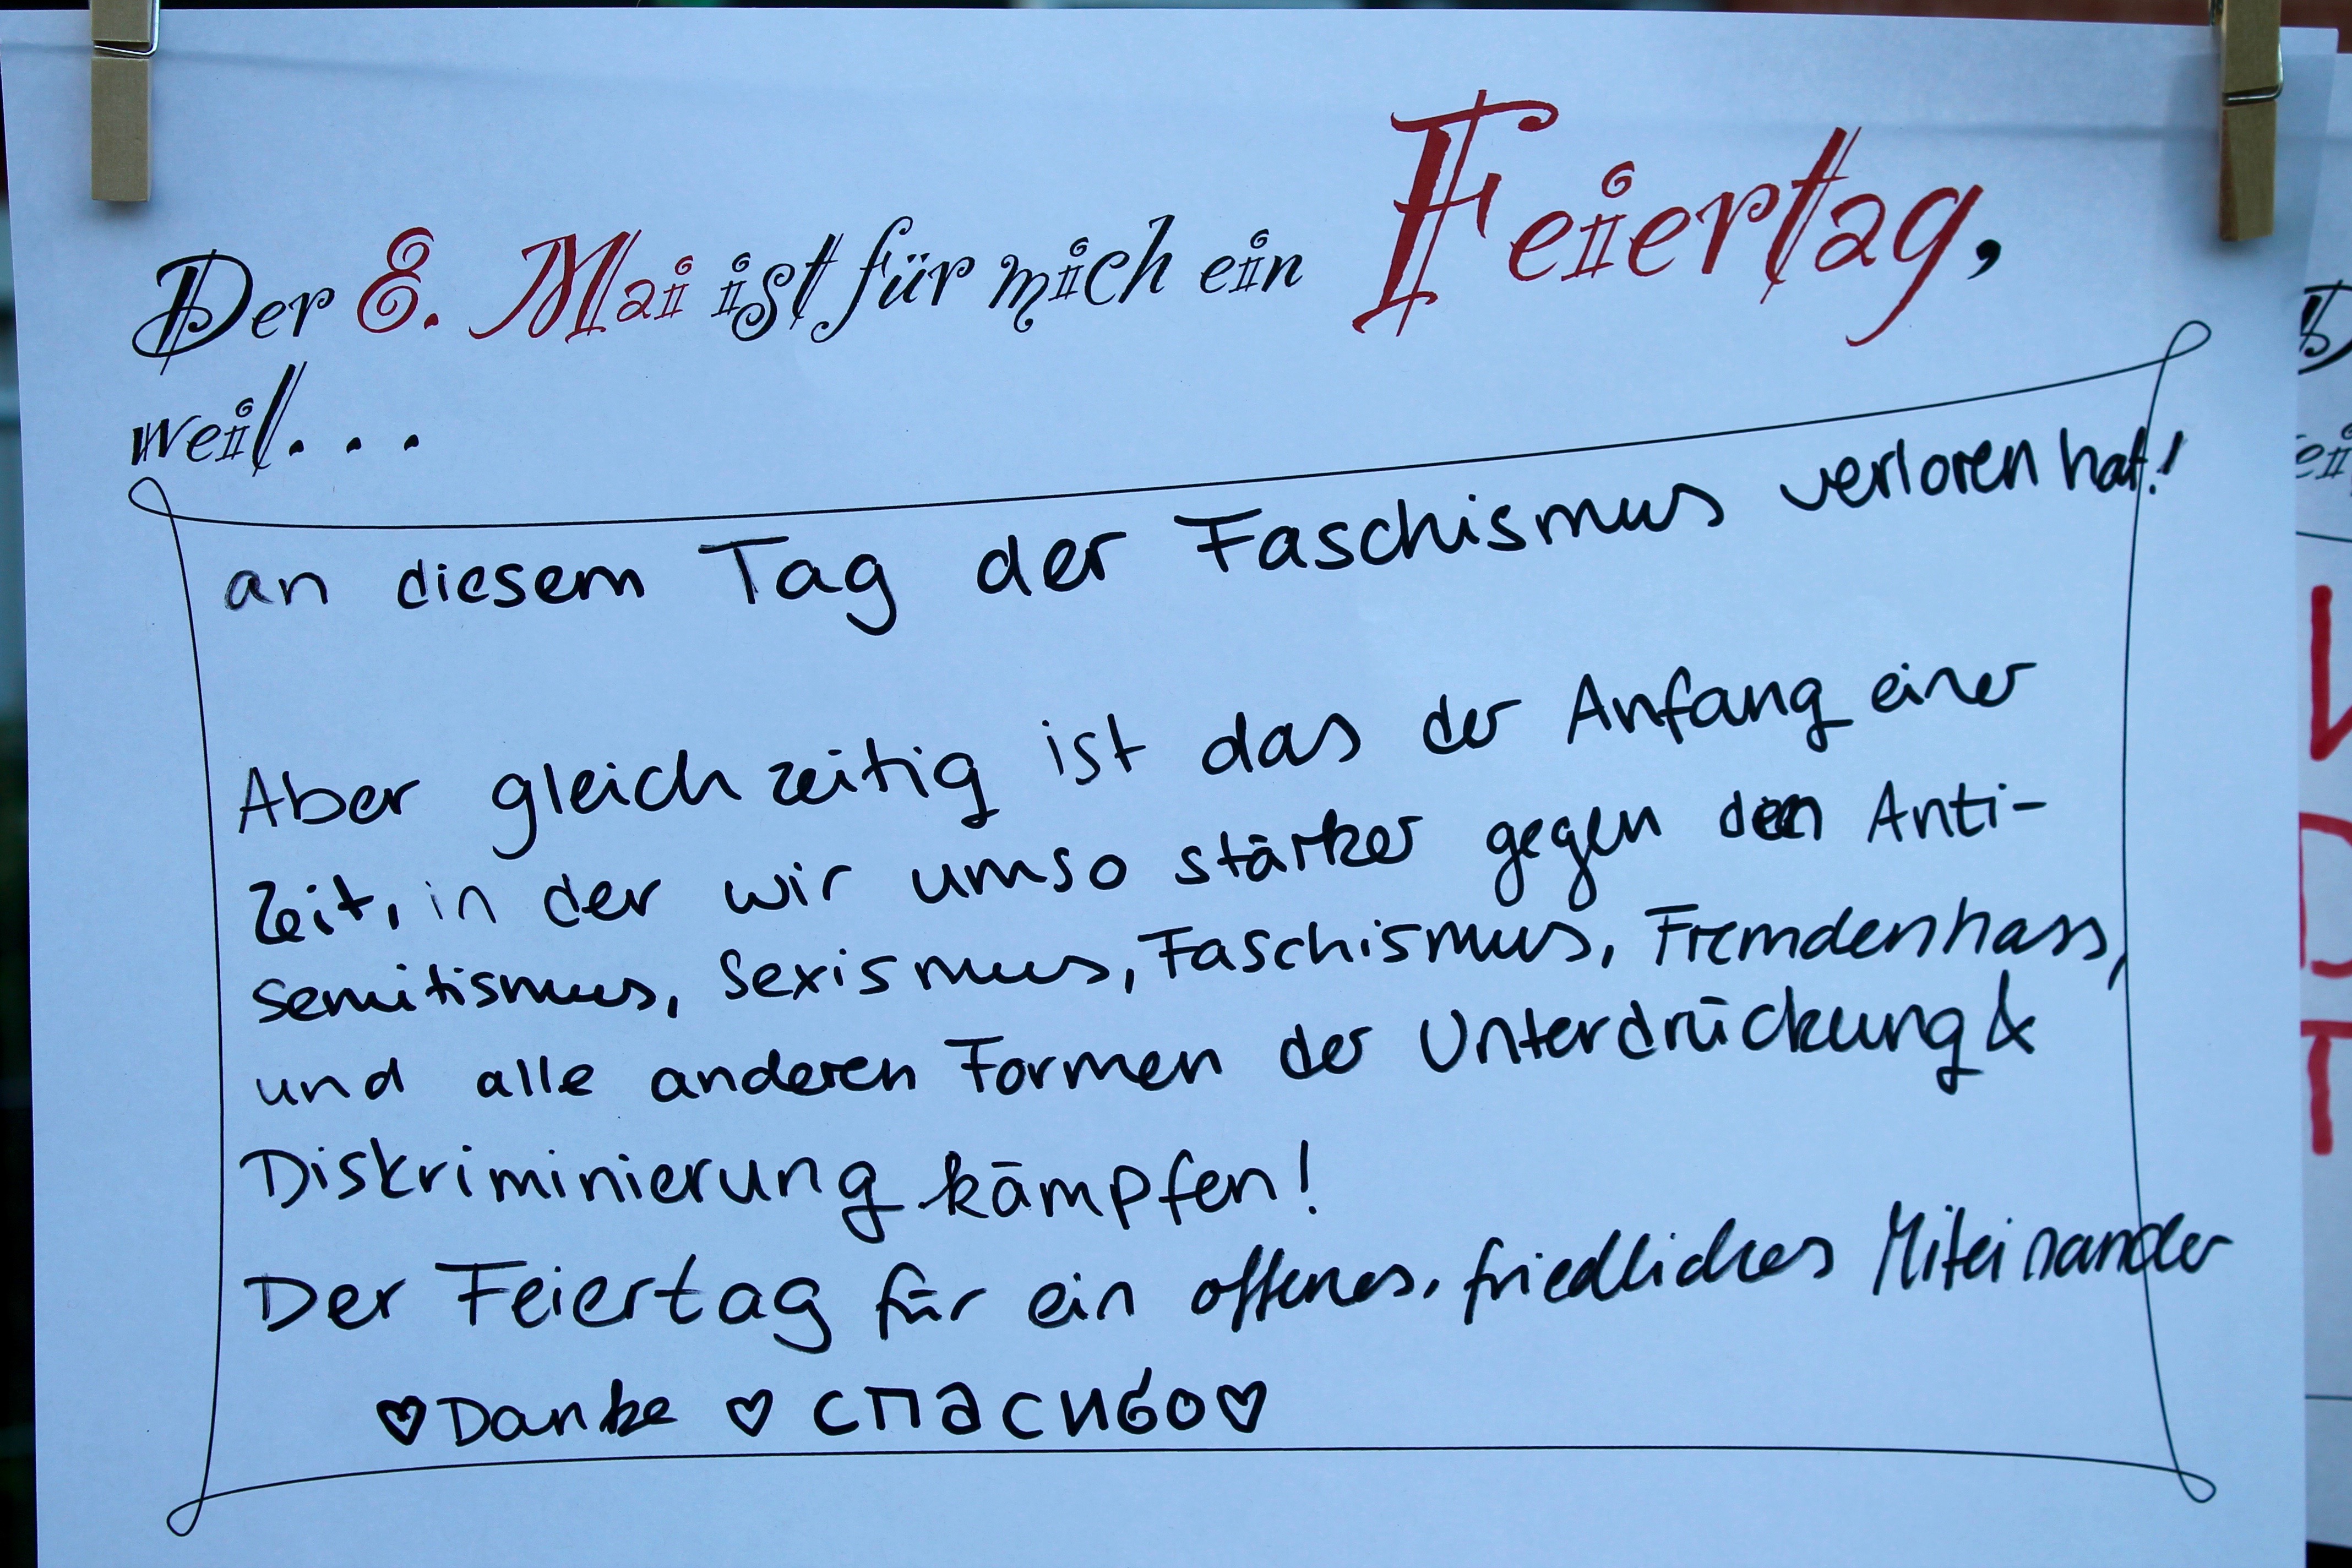 Der 8. Mai ist für mich ein Feiertag,
weil...
an diesem Tag der Faschismus verloren hat!
Aber gleichzeitig ist das der Anfang einer
Zeit, in der wir umso stärker gegen den Anti-
semitismus, Sexismus, Faschismus, Fremdenhass,
und alle anderen Formen der Unterdrückung &
Diskriminierung kämpfen!
Der Feiertag für ein offenes, friedliches Miteinander
♡ Danke ♡ спасибо ♡